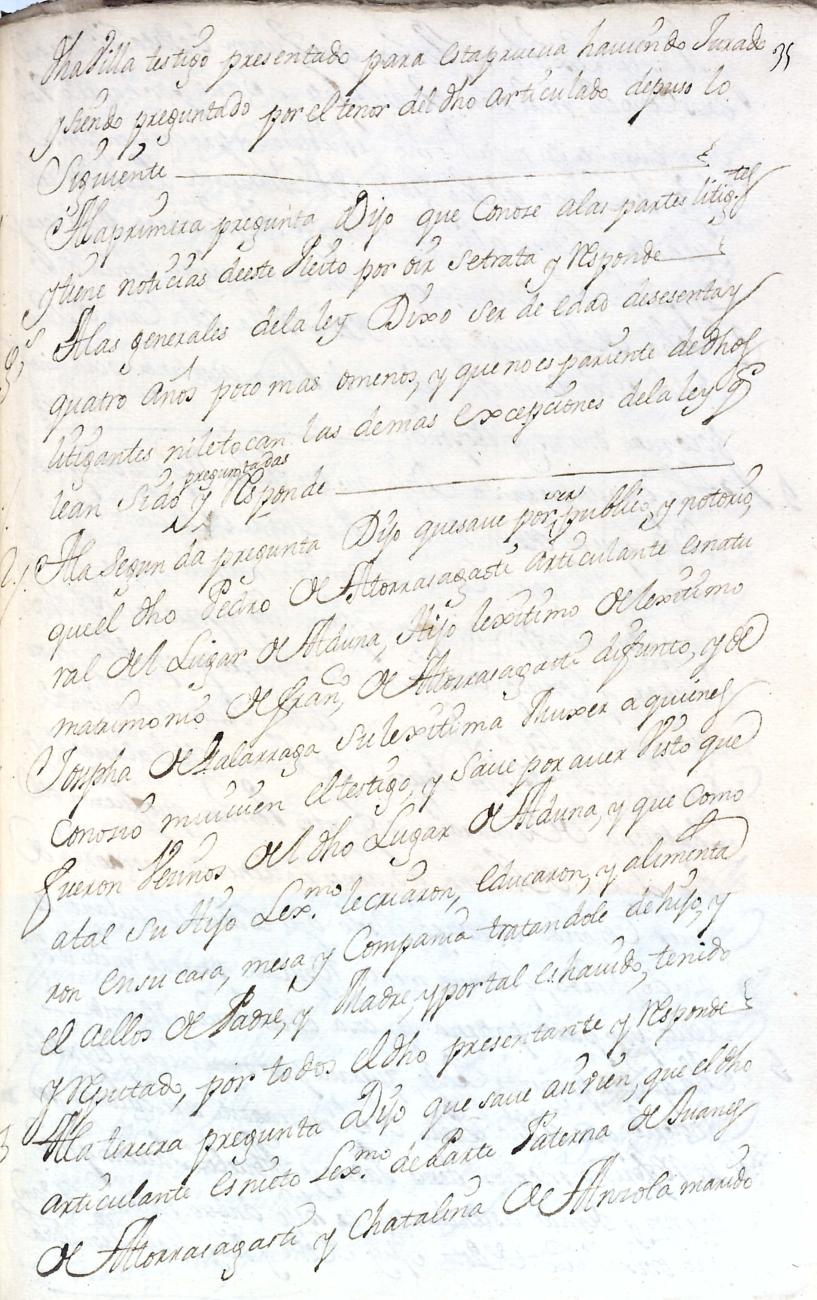 dha Villa testigo presentado para esta prueva haviendo Jurado 35
y siendo preguntado por el tenor del dho articulado depuso lo
Siguiente
A la primera pregunta Dijo que Conose a las partes litig.tes
y tiene noticias de este Pleito por oir se trata y Responde
g.s A las generales de la ley Dixo ser de edad de sesenta y
quatro años poco mas o menos, y que no es pariente de dhos
litigantes ni le tocan las demas excepciones de la ley q.e
le an sido preguntadas y Responde
2. A la segunda pregunta Dijo que save por ser publico, y notorio,
que el dho Pedro de Atorrasagasti articulante es natu
ral del Lugar de Aduna, Hijo lexitimo de lexitimo
matrimonio de Fran.co de Atorrasagasti difunto, y de
Josepha de Lalarraga su lexitima Muxer a quienes
Conosio mui bien el testigo, y save por aver Visto que
fueron Vecinos del dho Lugar de Aduna, y que como
a tal su Hijo Lex.mo le criaron, educaron, y alimenta
ron en su casa, mesa y Compania tratandole de hijo, y
el a ellos de Padre, y Madre, y por tal es havido, tenido
y Reputado, por todos el dho presentante y Responde
3 A la tercera pregunta Dijo que save asi vien, que el dho
articulante es nieto Lex.mo de Parte Paterna de Juanes
de Atorrasagasti y Chatalina de Anzola marido